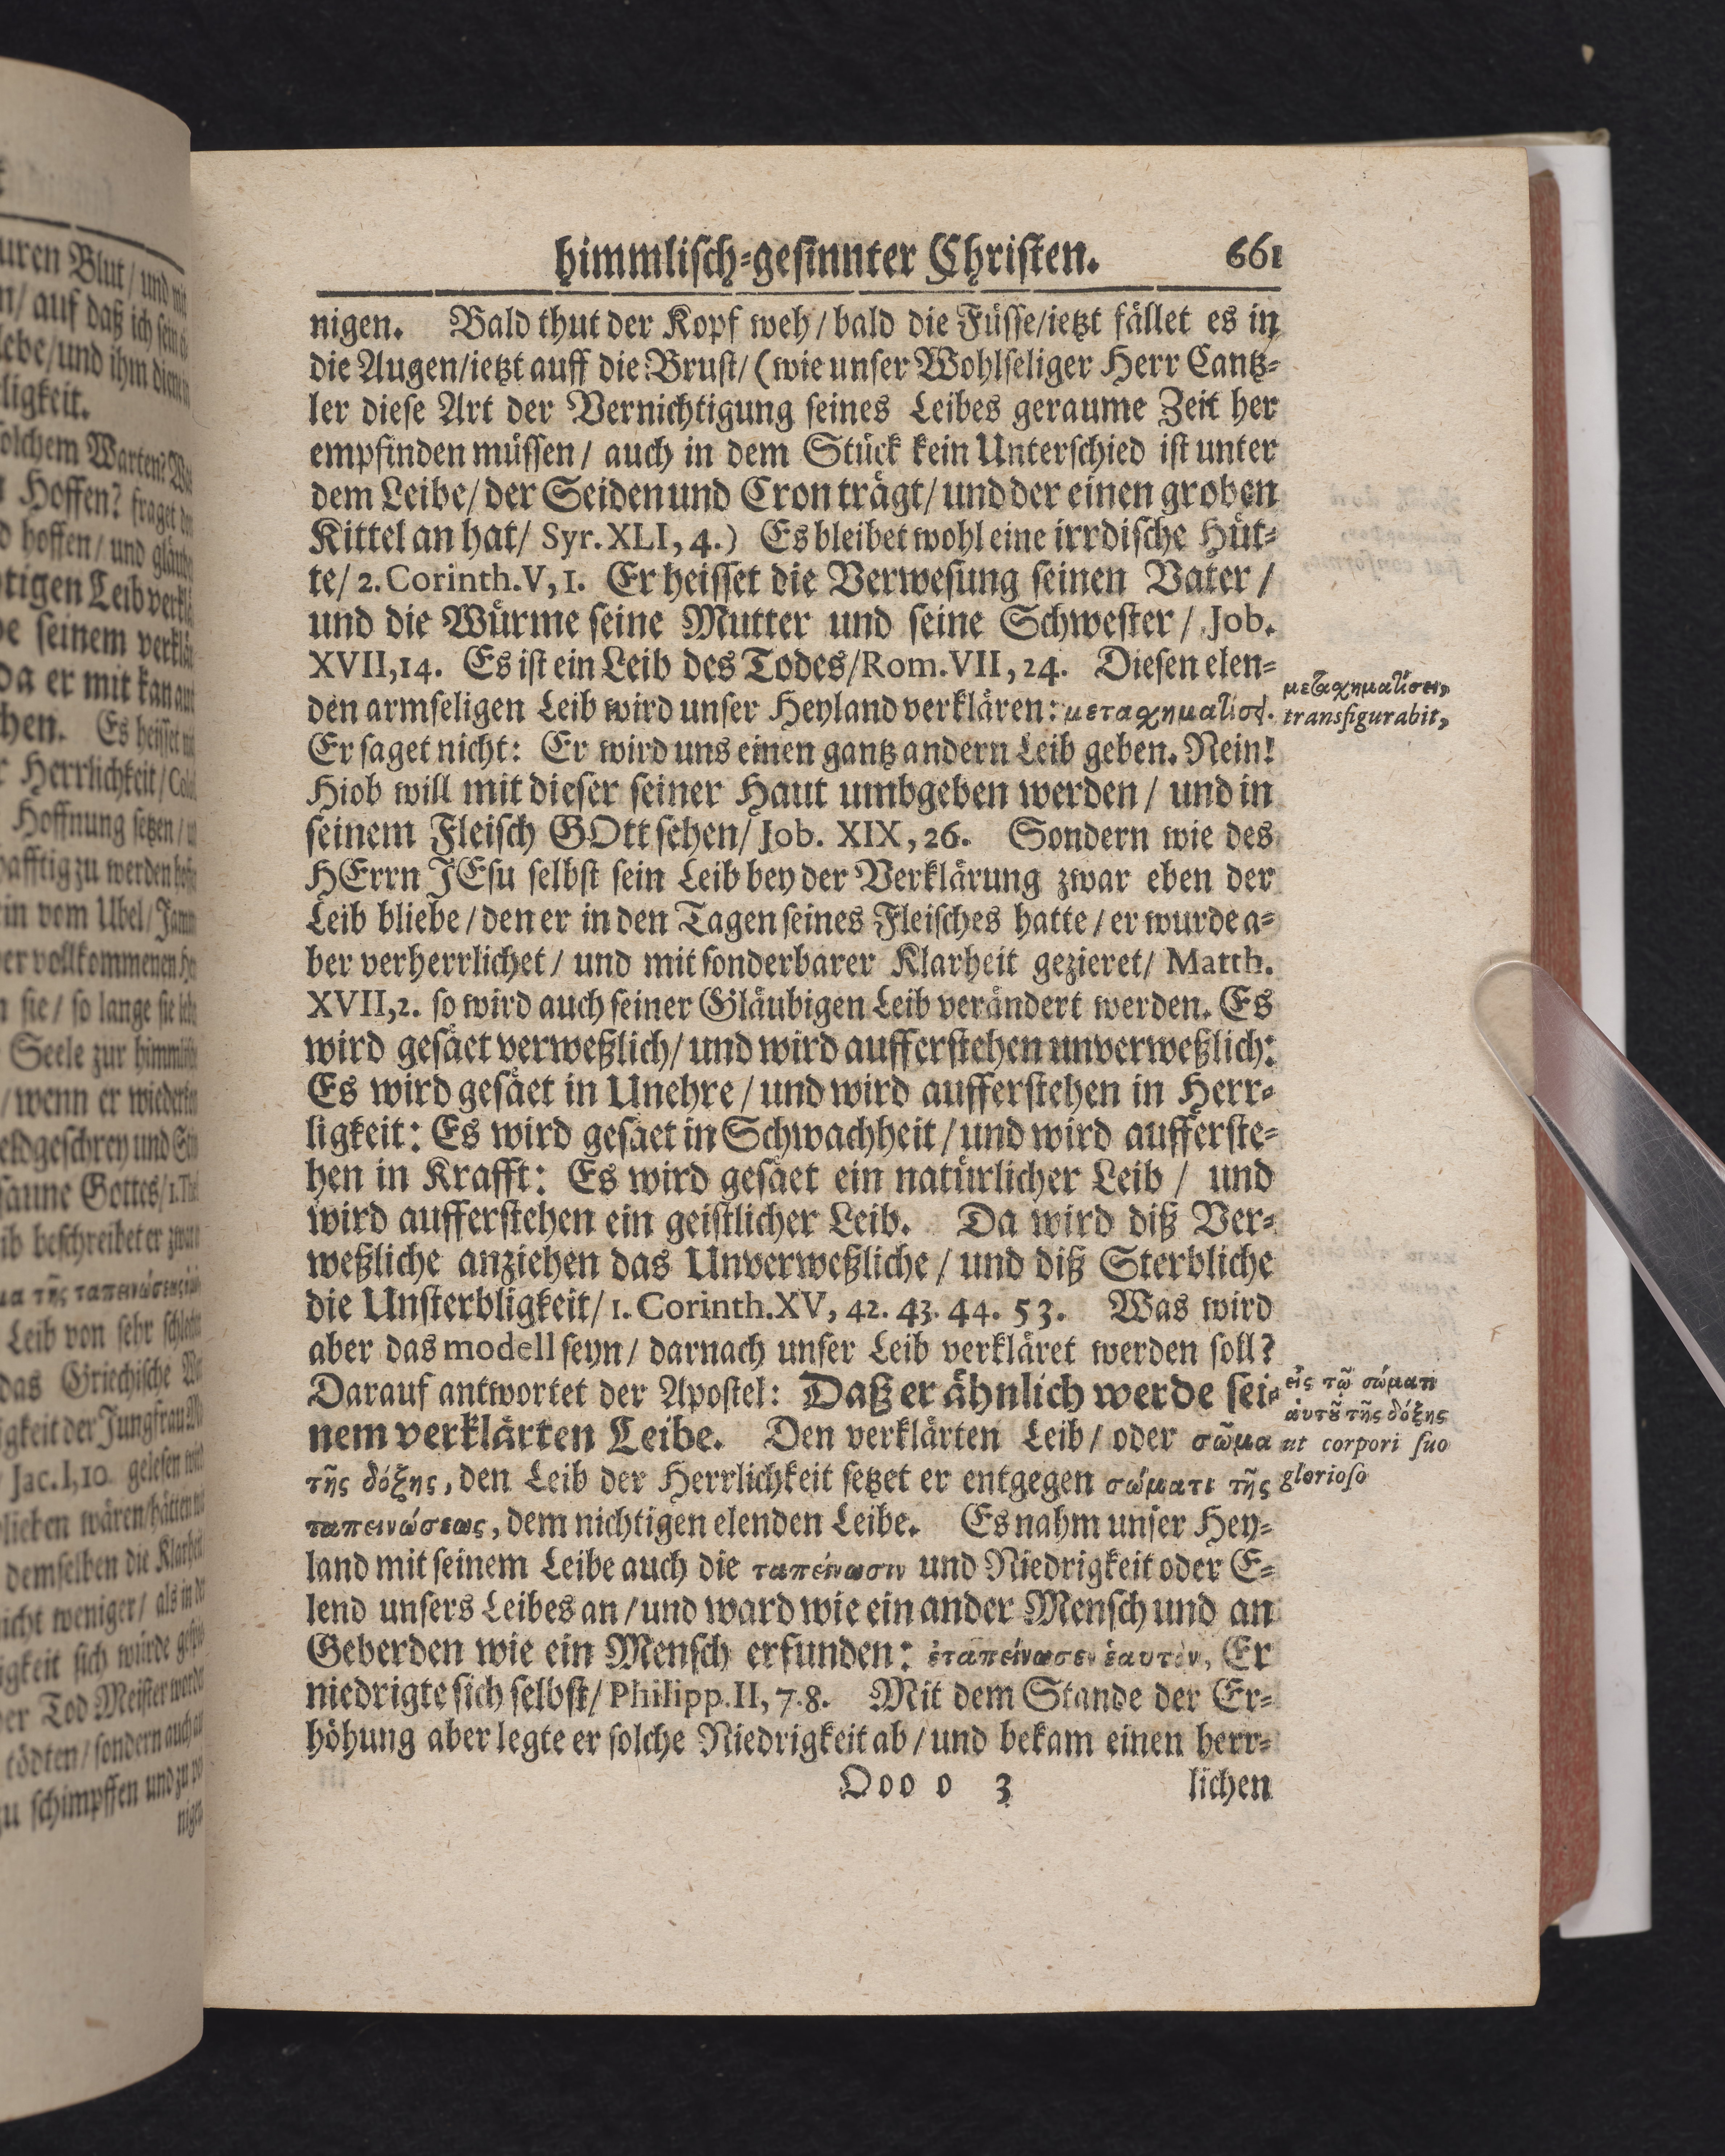 himmlisch-gesinnter Christen. 661
nigen. Bald thut der Kopf weh/bald die Füsse/ietzt fället es in
die Augen/ietzt auff die Brust/ (wie unser Wohlseliger Herr Cantz-
ler diese Art der Vernichtigung seines Leibes geraume Zeit her
empfinden müssen/ auch in dem Stück kein Unterschied ist unter
dem Leibe/ der Seiden und Cron trägt/ und der einen groben
Kittel an hat/ Syr. XLI, 4.) Es bleibet wohl eine irrdische Hüt-
te/ 2. Corinth. V, 1. Er heisset die Verwesung seinen Vater /
und die Würme seine Mutter und seine Schwester / Job.
XVII, 14. Es ist ein Leib des Todes/ Rom. VII, 24. Diesen elen-
den armseligen Leib wird unser Heyland verklären: μεταχηματίσει.
μεταχηματίσει,
transfigurabit,
Er saget nicht: Er wird uns einen gantz andern Leib geben. Nein!
Hiob will mit dieser seiner Haut umbgeben werden / und in
seinem Fleisch GOtt sehen/ Job. XIX, 26. Sondern wie des
HErrn JEsu selbst sein Leib bey der Verklärung zwar eben der
Leib bliebe / den er in den Tagen seines Fleisches hatte / er wurde a-
ber verherrlichet / und mit sonderbarer Klarheit gezieret/ Matth.
XVII, 2. so wird auch seiner Gläubigen Leib verändert werden. Es
wird gesäet verweßlich/ und wird aufferstehen unverweßlich:
Es wird gesäet in Unehre / und wird aufferstehen in Herr-
ligkeit: Es wird gesäet in Schwachheit / und wird aufferste-
hen in Krafft: Es wird gesäet ein natürlicher Leib / und
wird aufferstehen ein geistlicher Leib. Da wird diß Ver-
weßliche anziehen das Unverweßliche / und diß Sterbliche
die Unsterbligkeit/ 1. Corinth. XV, 42. 43. 44. 53. Was wird
aber das modell seyn/ darnach unser Leib verkläret werden soll?
Darauf antwortet der Apostel: Daß er ähnlich werde sei-
nem verklärten Leibe. Den verklärten Leib / oder σῶμα
εἰς τῷ σώματι
ἀυτȣ͂ τῆς δόξης
ut corpori suo
glorioso
τῆς δόξης, den Leib der Herrlichkeit setzet er entgegen σώματι τῆς
ταπεινώσεως, dem nichtigen elenden Leibe. Es nahm unser Hey-
land mit seinem Leibe auch die ταπείνωσιν und Niedrigkeit oder E-
lend unsers Leibes an / und ward wie ein ander Mensch und an
Geberden wie ein Mensch erfunden: ἐταπείνωσεν ἑαυτὸν, Er
niedrigte sich selbst/ Philipp. II, 7. 8. Mit dem Stande der Er-
höhung aber legte er solche Niedrigkeit ab / und bekam einen herr-
Ooo o 3 lichen